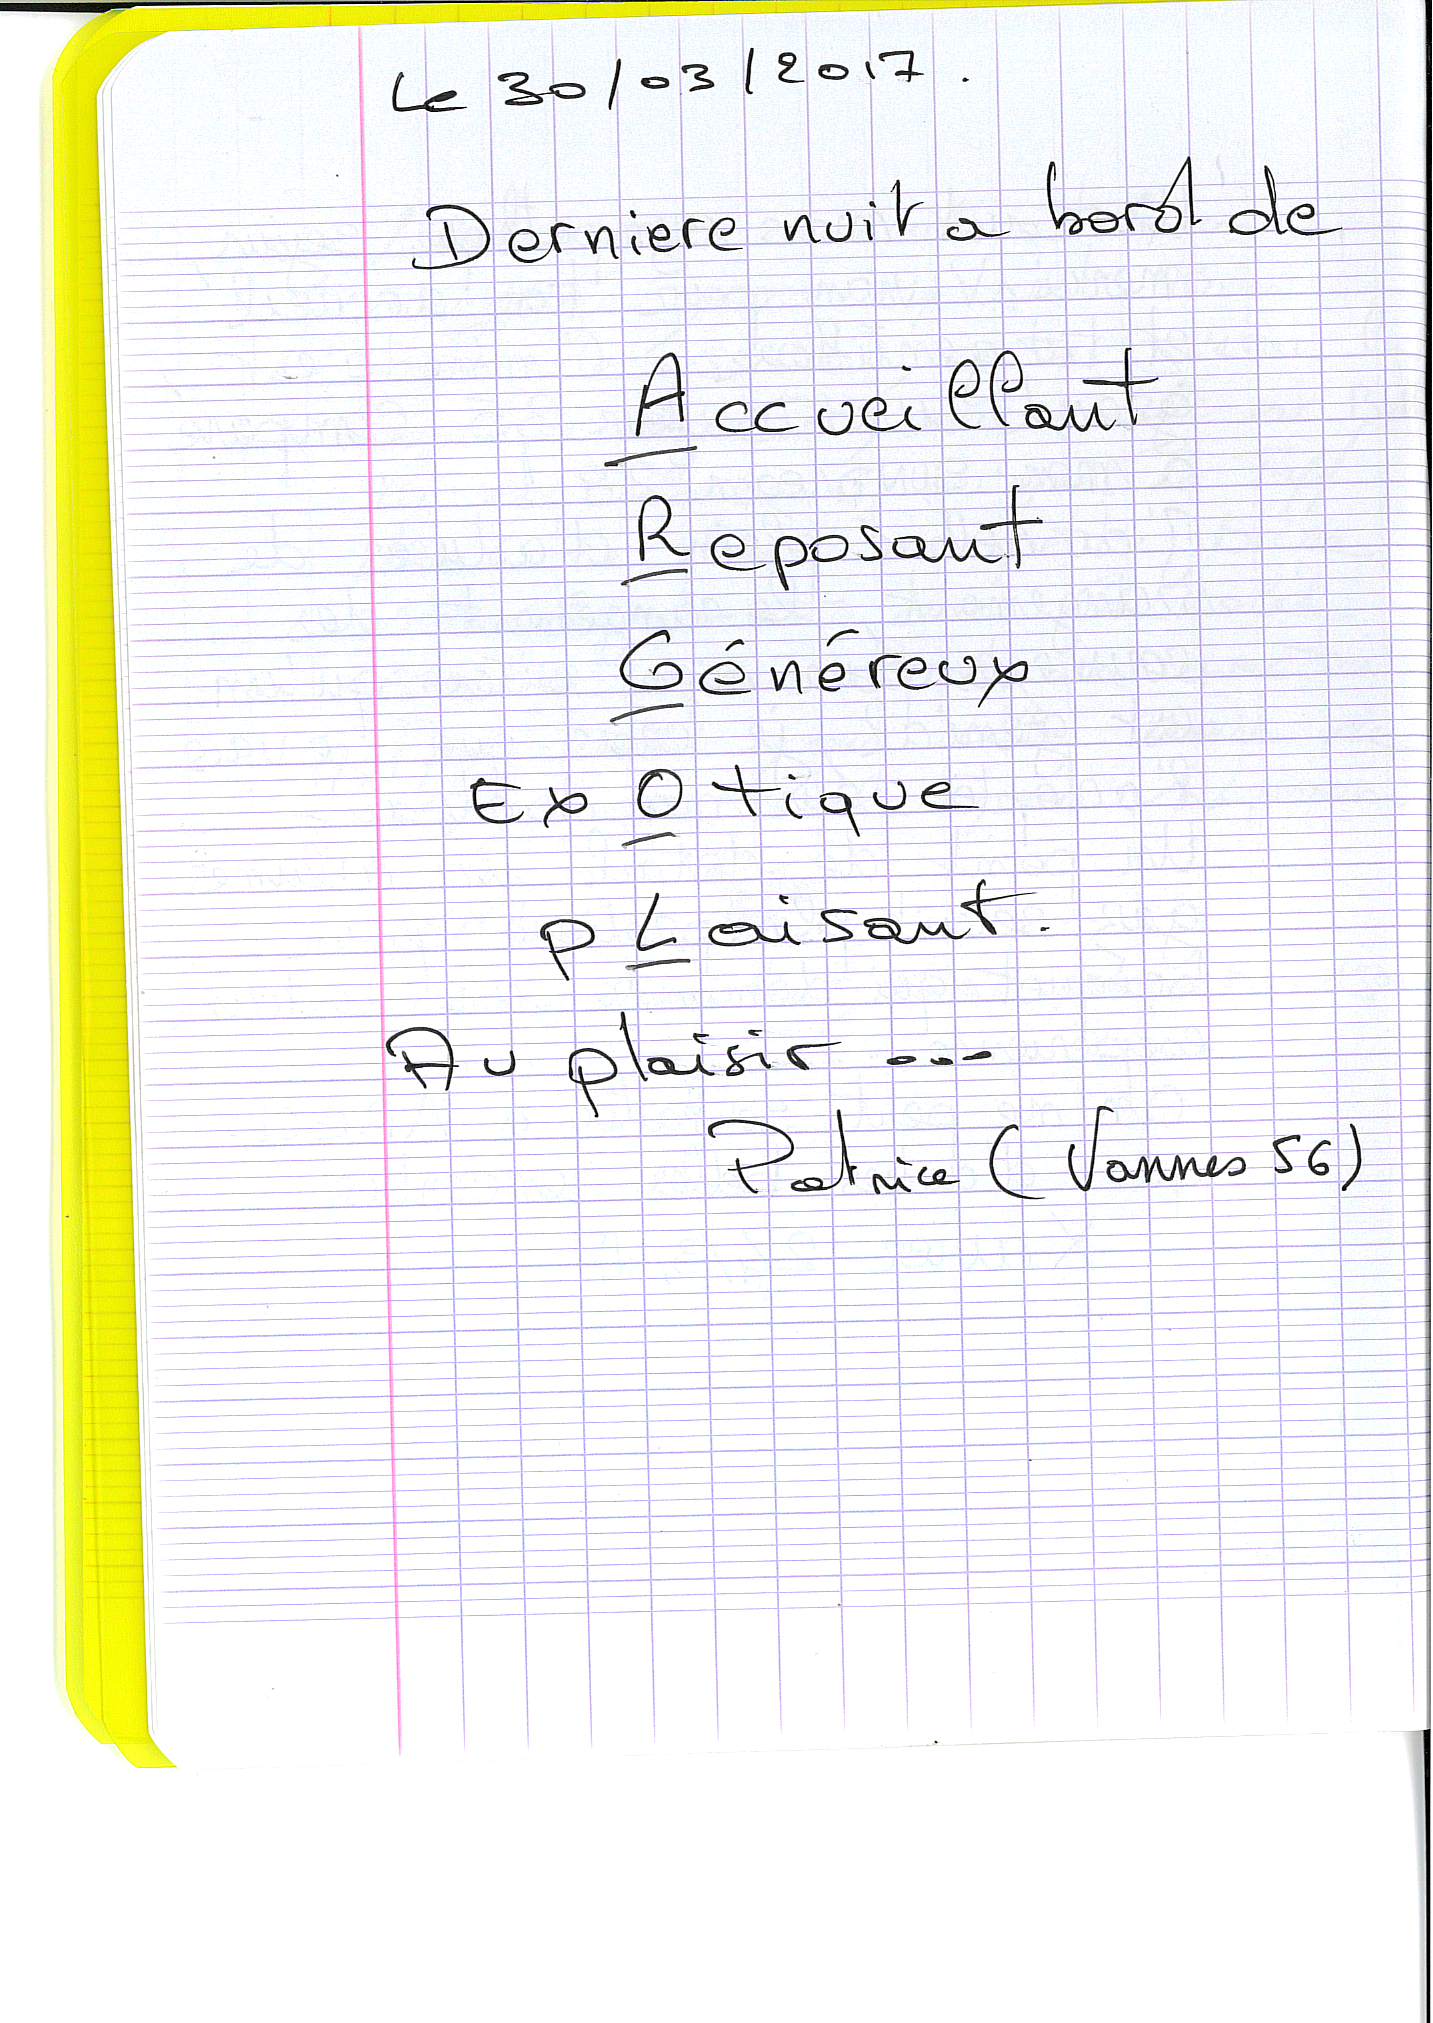 Le 30/03/2017.
Derniere nuit a bord de
Accueillant
Reposant
Généreux
ExOtique
pLaisant.
Au plaisir ...
Patrice (Vannes 56)